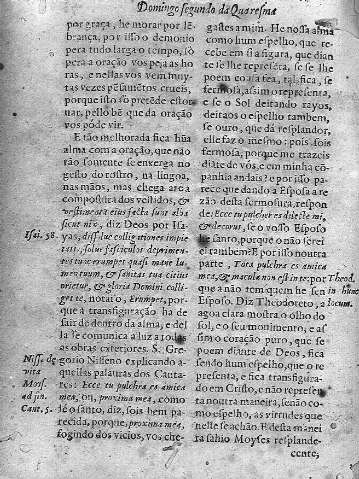 Domingo segundo da Quaresma
por graça, he morar por lẽ-
brança, por isso o demonio
pera tudo larga o tempo, só
pera a oração vos peja as ho-
ras, e nellas vos vem muy-
tas vezes pẽsamẽtos crueis,
porque isto só pretẽde estor-
uar, pello bẽ que da oração
vos póde vir.
E tão melhorada fica hũa
alma com a oração, que não
tão somente se enxerga no
gesto do rostro, na lingoa,
nas mãos, mas chega a rca
compostura dos vestidos, &
vestimẽta eius facta sunt alba
sicut nix, diz Deos por Isa-
Isai. 58.
yas, dissolue colligationes impie
tatis, solue fasciculos deprimen-
tes tunc erumpet quasi mane lu-
men tuum, & sanitas tua citius
orietur, & gloria Domini collig-
get te, notai o, Erumpet, por-
que a transfiguração ha de
sair de dentro da alma, e del
la se comunica a luz a todas
as obras exteriores. S. Gre-
Nisse. de vita Mois. ad fin. Cant. 5.
gorio Nisseno explicando a-
quellas palauras dos Canta-
res: Ecce tu pulchra es amica
mea, ou, proxima mea, como
lé o santo, diz, sois bem pa-
recida, porque, proxima mea,
fogindo dos vicios, vos che-
gastes a mim. He nossa alma
como hum espelho, que re-
cebe em si a figura, que nel-
le se lhe represẽta, se se lhe
poem cousa fea, tal fica, se
fermosa, assim o representa,
e se o Sol deitando rayos,
deitaos o espelho tambem,
se ouro, que dá resplandor,
elle faz o mesmo: pois sois
fermosa, porque me trazeis
diãte de vós, e em minha cõ-
panhia andais? e por isso pa-
rece que dando a Esposa a re-
zão desta sermosura, respon-
de: Ecce tu pulcher es dilecte mi,
& decorus, se o vosso Esposo
he santo, porque o não serei
eu tambem? E por isso noutra
parte, Tota pulchra es amica
mea, & macula non est in te: por
Theod. in hunc locum.
que a não tem quem he seu
Esposo. Diz Theodoreto, a
agoa clara mostra o olho do
sol, e o seu mouimento, e as
sim o coração puro, que se
poem diante de Deos, fica
sendo hum espelho, que o re
presenta, e fica transfigura-
do em Cristo, e não represen-
ta noutra maneira, senão co-
mo espelho, as virtudes que
nelle se achão. E desta manei
ra sahio Moyses resplande-
cente,